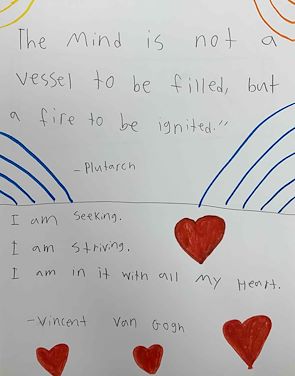 The Mind is not a
vessel to be filled, but
a fire to be ignited."
-Plutarch
I am Seeking.
I am Striving.
I am in it with all my Heart.
-Vincent Van Gogh